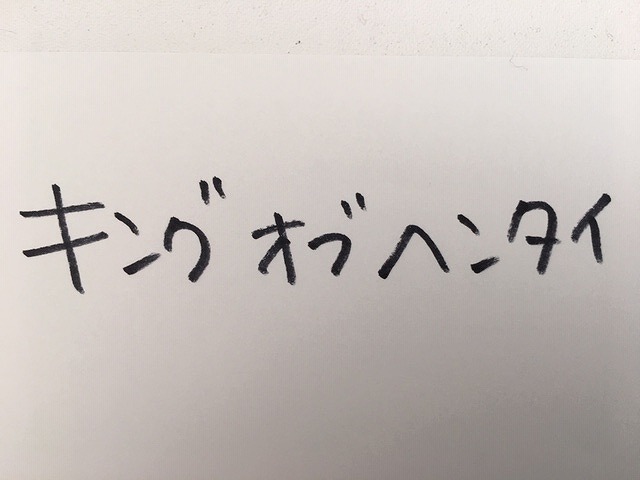 キングオブヘンタイ